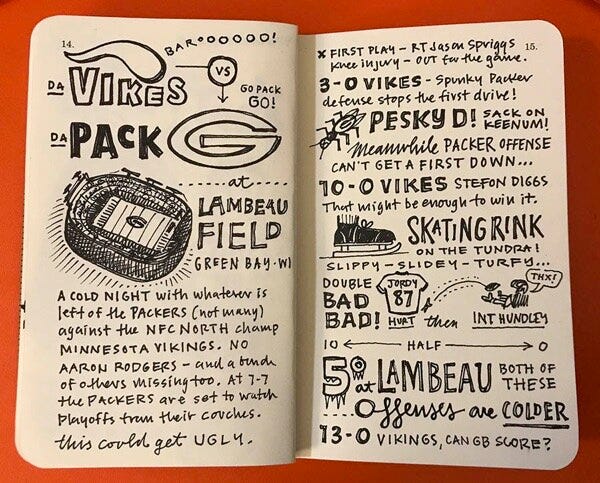 14.
BAROOOOOO!
DA VIKES
VS
GO PACK
GO!
DA PACK
G
at
LAMBEAU
FIELD
GREEN BAY·WI
A COLD NIGHT with whatever is
left of the PACKERS (not many)
against the NFC NORTH champ
MINNESOTA VIKINGS. NO
AARON RODGERS - and a bunch
of others missing too. AT 7-7
the PACKERS are set to watch
playoffs from their couches.
this could get UGLY.
15.
x FIRST PLAY - RT Jason Spriggs
knee injury - OUT for the game.
3-0 VIKES - Spunky Packer
defense stops the first drive!
PESKY D! SACK ON
KEENUM!
Meanwhile PACKER OFFENSE
CAN'T GET A FIRST DOWN...
10-0 VIKES STEFON DIGGS
That might be enough to win it.
SKATING RINK
ON THE TUNDRA!
SLIPPY-SLIDEY-TURFY...
DOUBLE
BAD
BAD!
JORDY
87
HURT
& then
THX!
INT HUNDLEY
10 HALF 0
5° at LAMBEAU BOTH OF
THESE
Offenses are COLDER
13-0 VIKINGS, CAN GB SCORE?